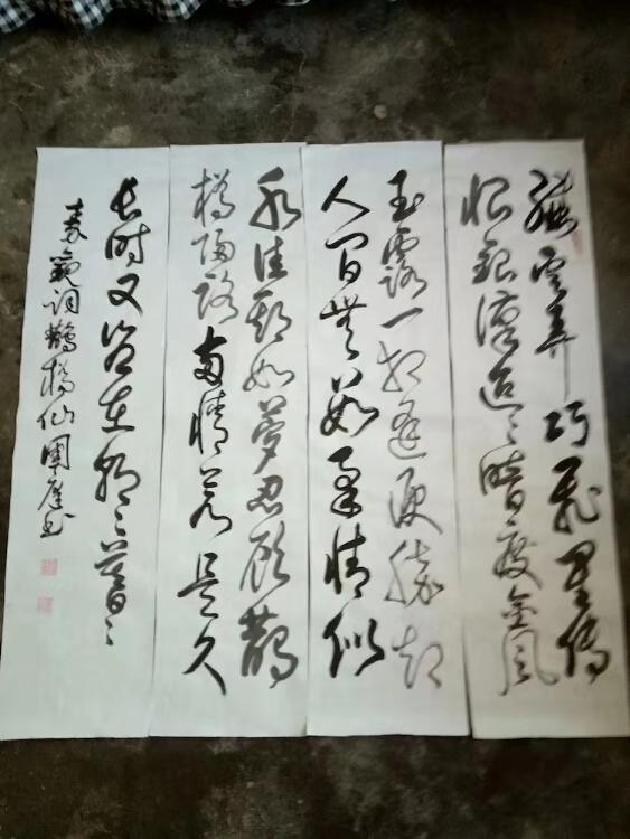 纖雲弄巧飛星傳
恨銀漢迢々暗度金風
玉露一相逢便勝却
人間無數柔情似
水佳期如夢忍顧鵲
橋歸路兩情若是久
長時又豈在朝々暮々
秦觀詞鵲橋仙 書